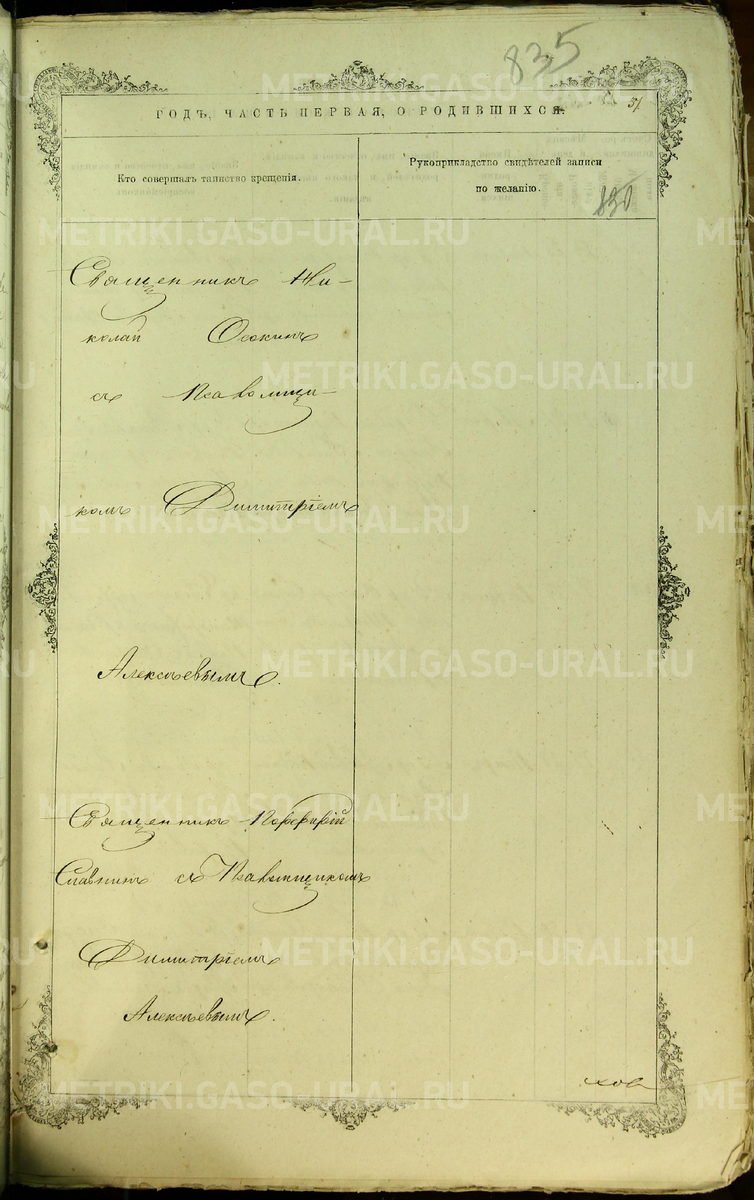 835
51
ГОДЪ, ЧАСТЬ ПЕРВАЯ, О РОДИВШИХСЯ.
Кто совершалъ таинство крещенія.
Рукоприкладство свидѣтелей записи
по желанію.
830
Священникъ Ни-
колай Осокинъ
съ Псаломщи-
комъ Димитріемъ
Алексѣевымъ.
Священникъ Порфирій
Славнинъ съ Псаломщикомъ
Димитріемъ
Алексѣевымъ.
METRIKI.GASO-URAL.RU